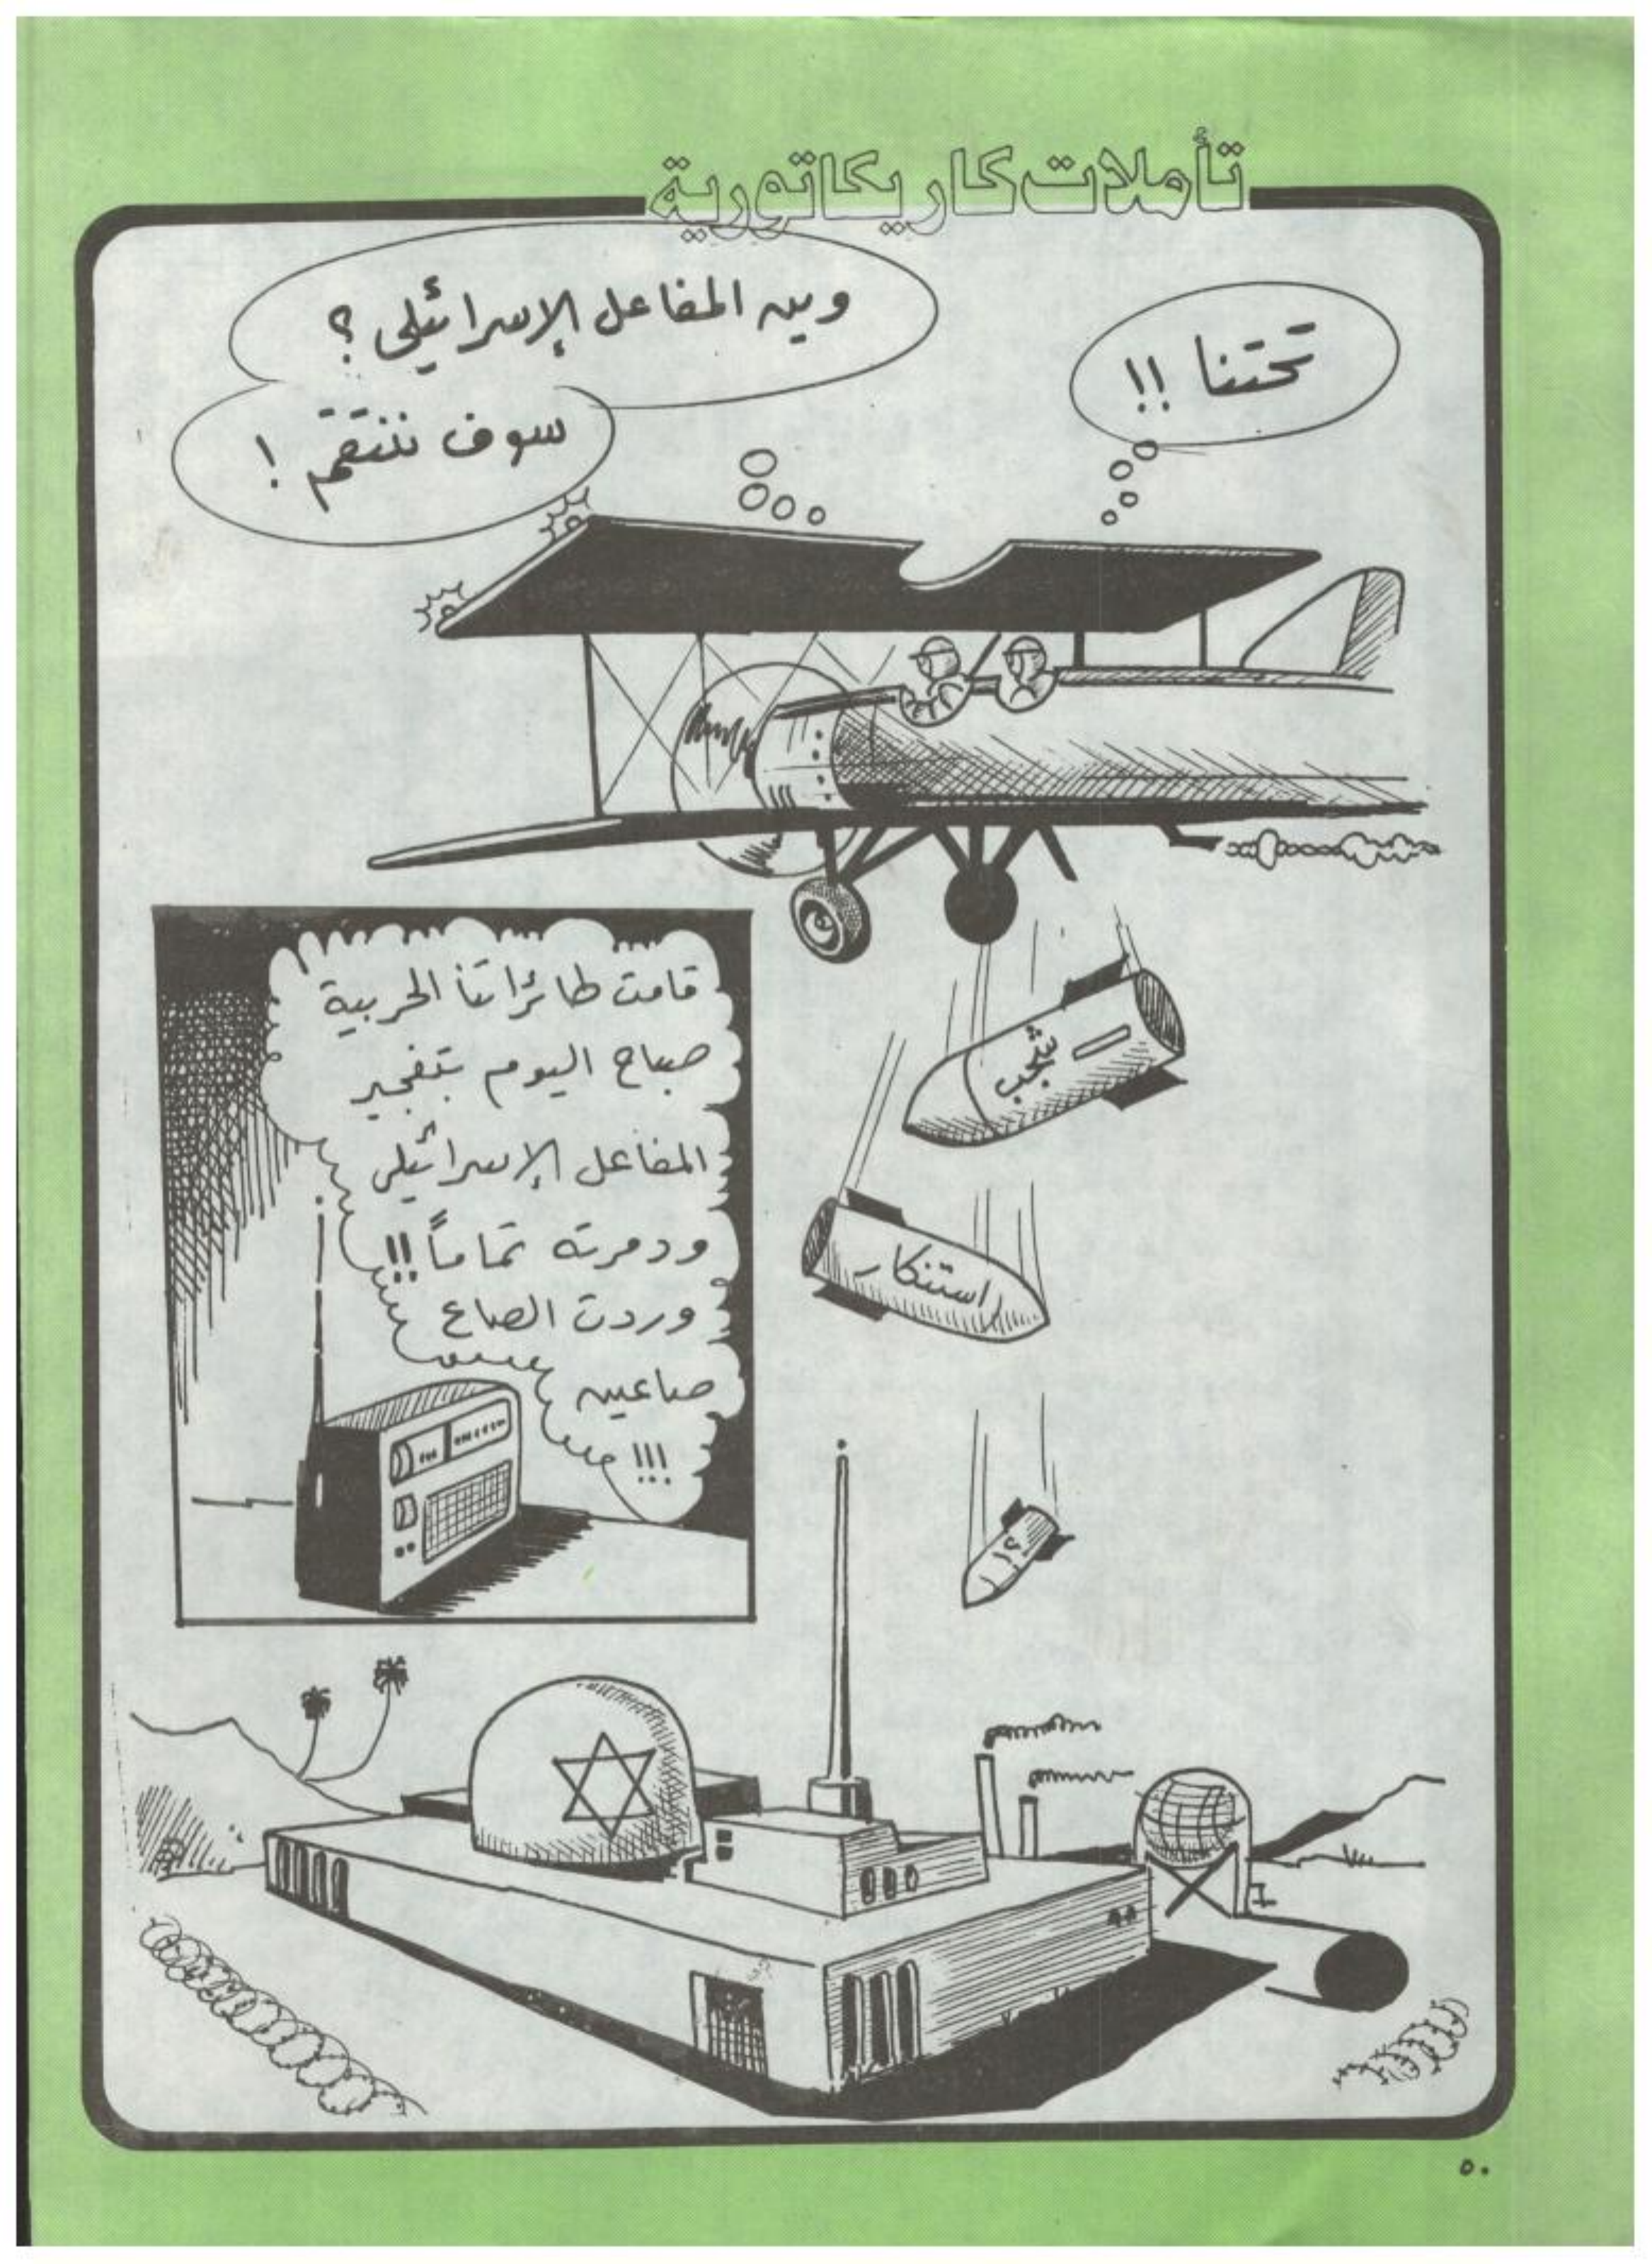 تأملات كاريكاتورية
تحتنا !!
وين المفاعل الإسرائيلي ؟
سوف ننتقم !
قامت طائراتنا الحربية
صباح اليوم بتفجير
المفاعل الإسرائيلي
ودمرته تماماً !!
وردت الصاع
صاعين
!!!
شجب
استنكار
٥٠